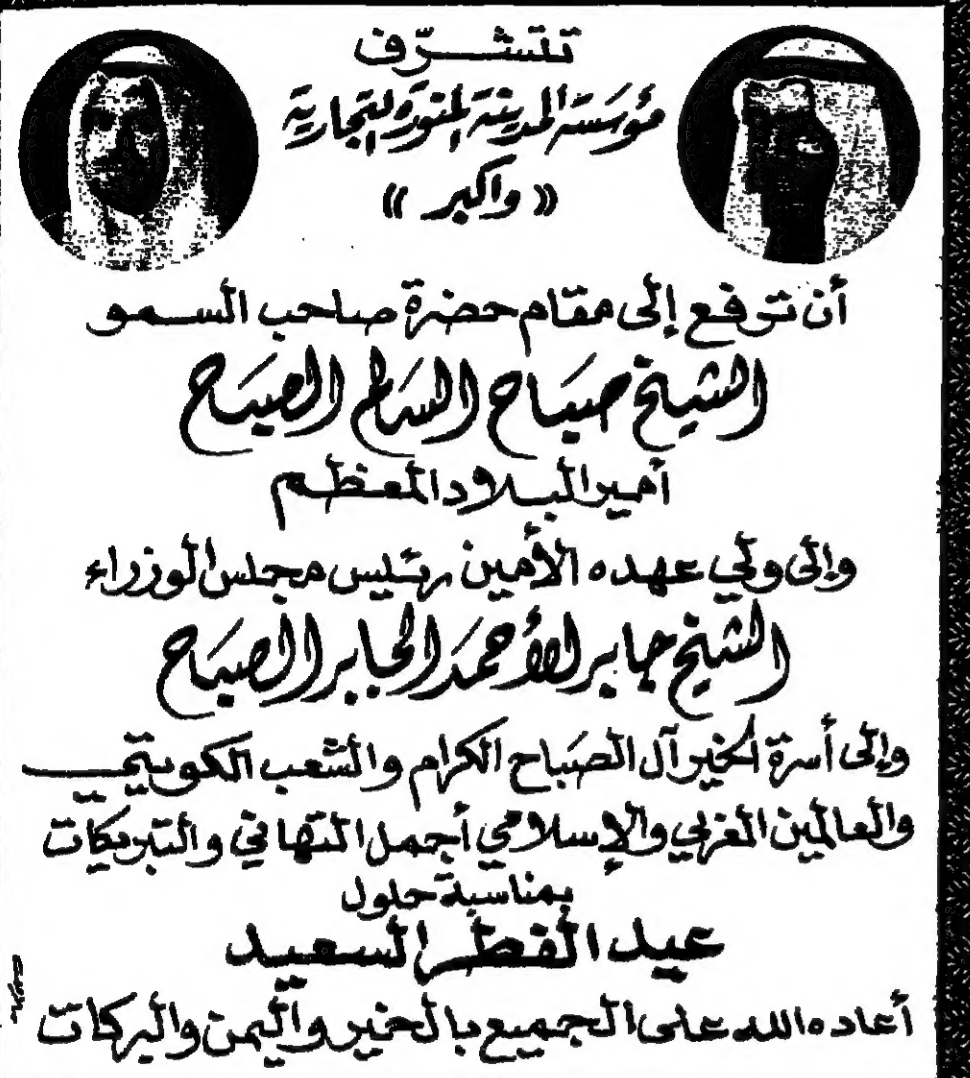 تتشرّف
مؤسسة المدينة المنورة التجارية
« واكبر »
أن ترفع إلى مقام حضرة صاحب السمو
الشيخ صباح السالم الصباح
أمير البلاد المعظم
وإلى ولي عهده الأمين رئيس مجلس الوزراء
الشيخ جابر الأحمد الجابر الصباح
وإلى أسرة الخير آل الصباح الكرام والشعب الكويتي
والعالمين العربي والإسلامي أجمل التهاني والتبريكات
بمناسبة حلول
عيد الفطر السعيد
أعاده الله على الجميع بالخير واليمن والبركات